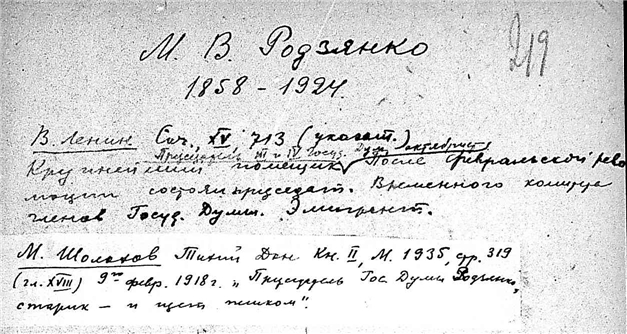 219
М. В. Родзянко
1858 - 1924
В. Ленин Соч., XV, 713 (указат.)
Председатель III и IV Госуд. Думы, октябрист
Крупнейший помещик. После февральской рево
люции состоял председат. Временного комитета
членов Госуд. Думы. Эмигрант.
М. Шолохов Тихий Дон Кн. II, М. 1935, стр. 319
(гл. XVIII) 9го февр. 1918г. „Председатель Гос. Думы Родзянко,
старик – и идет пешком".